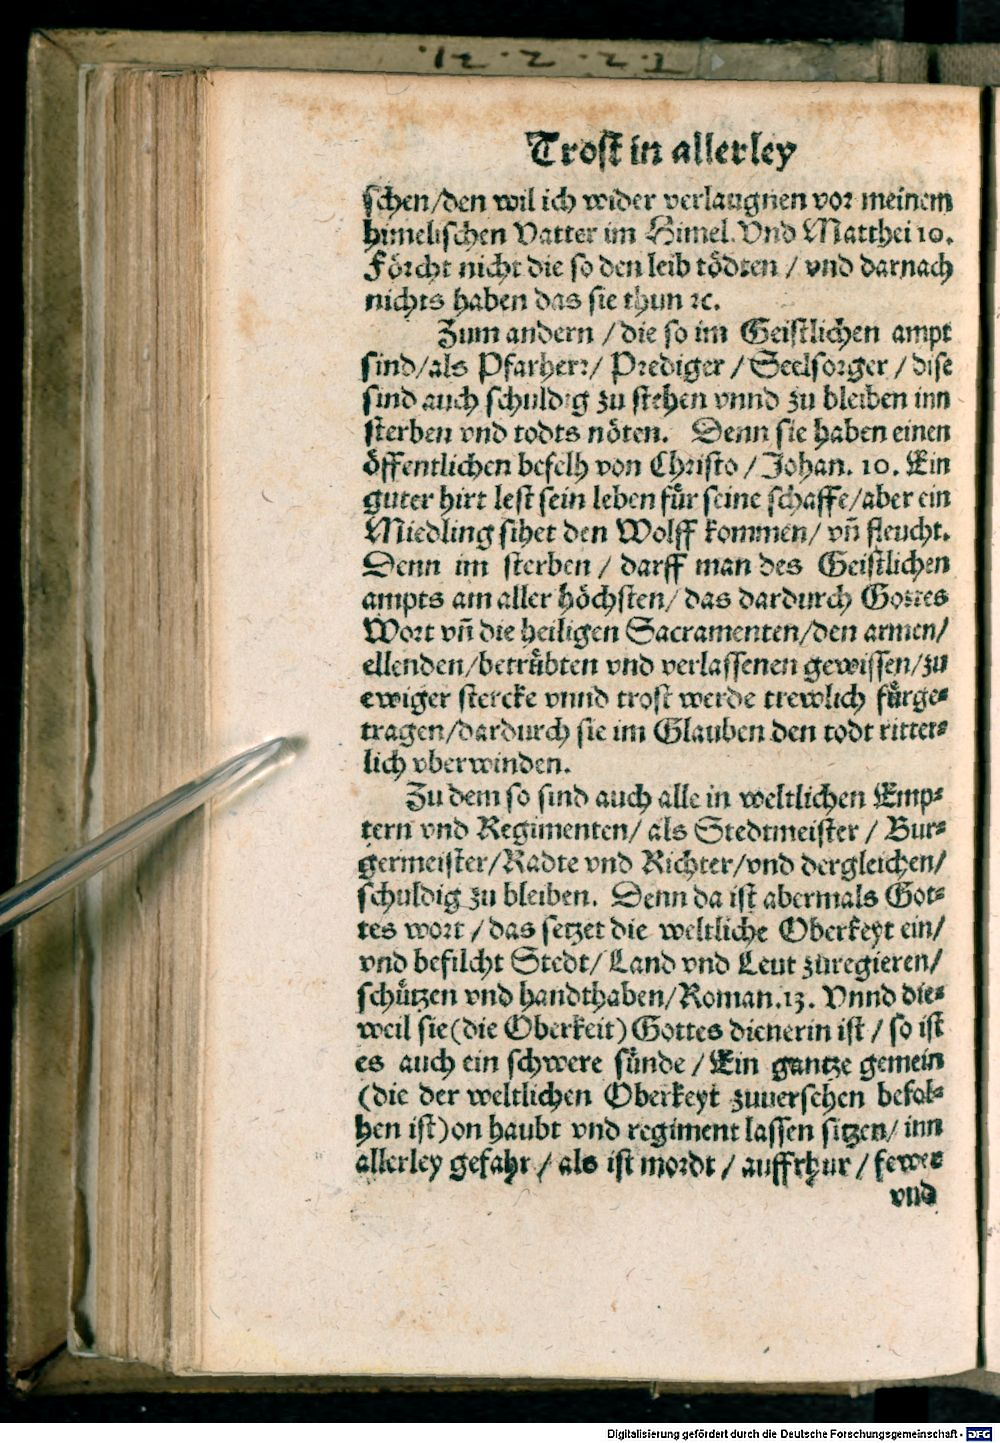 Trost in allerley
schen/den wil ich wider verlaugnen vor meinem
himelischen Vatter im Himel. Vnd Matthei 10.
Förcht nicht die so den leib tödten / vnd darnach
nichts haben das sie thun ꝛc.
Zum andern / die so im Geistlichen ampt
sind/als Pfarherr/ Prediger / Seelsorger / dise
sind auch schuldig zu stehen vnnd zu bleiben inn
sterben vnd todts nöten. Denn sie haben einen
öffentlichen befelh von Christo / Johan. 10. Ein
guter hirt lest sein leben fuͤr seine schaffe/aber ein
Miedling sihet den Wolff kommen/ vñ fleucht.
Denn im sterben / darff man des Geistlichen
ampts am aller höchsten/ das dardurch Gottes
Wort vñ die heiligen Sacramenten/den armen/
ellenden/betruͤbten vnd verlassenen gewissen/zu
ewiger stercke vnnd trost werde trewlich fuͤrge⸗
tragen/dardurch sie im Glauben den todt ritter⸗
lich vberwinden.
Zu dem so sind auch alle in weltlichen Emp⸗
tern vnd Regimenten/ als Stedtmeister / Bur⸗
germeister/Radte vnd Richter/vnd dergleichen/
schuldig zu bleiben. Denn da ist abermals Got⸗
tes wort / das setzet die weltliche Oberkeyt ein/
vnd befilcht Stedt/ Land vnd Leut zuregieren/
schuͤtzen vnd handthaben/Roman.13. Vnnd die⸗
weil sie(die Oberkeit) Gottes dienerin ist / so ist
es auch ein schwere suͤnde / Ein gantze gemein
(die der weltlichen Oberkeyt zuuersehen befol⸗
hen ist)on haubt vnd regiment lassen sitzen/ inn
allerley gefahr / als ist mordt / auffrhur / fewer
vnd
Digitalisierung gefördert durch die Deutsche Forschungsgemeinschaft - DFG